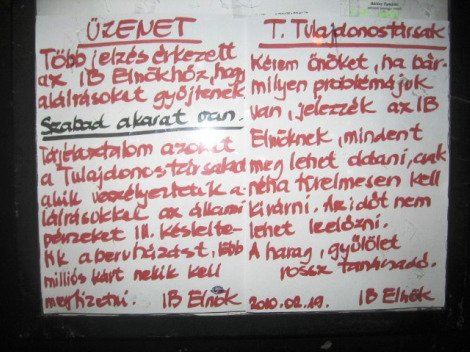 ÜZENET
Több jelzés érkezett
az IB Elnökhöz, hogy
aláírásokat gyűjtenek
Szabad akarat van.
Tájékoztatom azokat
a Tulajdonostársakat
akik veszélyeztetik a-
láírásukkal az állami
pénzeket ill. késlelte-
tik a beruházást, több
milliós kárt nekik kell
megfizetni. IB Elnök
T. Tulajdonostársak
Kérem önöket, ha bár-
milyen problémájuk
van, jelezzék az IB
Elnöknek, mindent
meg lehet oldani, csak
néha türelmesen kell
kivárni. Az időt nem
lehet előzni.
A harag, gyűlölet
rossz tanácsadó.
2010.02.19. IB Elnök